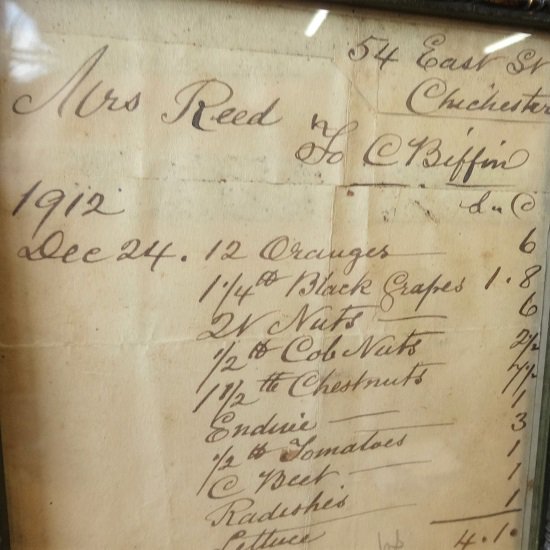 54 East St
Chichester
Mrs Reed
To C Biffin
1912
Dec 24. 12 Oranges 6
1 1/4 lb Black Grapes 1. 8
Nuts 6
1/2 lb Cob Nuts 2 1/2
1 1/2 lb Chestnuts 7 1/2
Endive 1
1/2 lb Tomatoes 3
C Beet 1
Radishes 1
Lettuce 1
4. 1.